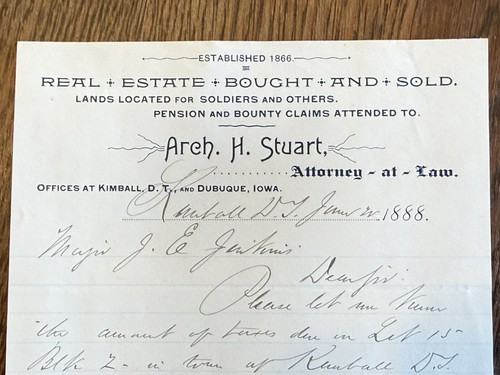 ESTABLISHED 1866.
REAL + ESTATE + BOUGHT + AND + SOLD.
LANDS LOCATED FOR SOLDIERS AND OTHERS.
PENSION AND BOUNTY CLAIMS ATTENDED TO.
Arch. H. Stuart,
Attorney - at - Law.
OFFICES AT KIMBALL, D. T., AND DUBUQUE, IOWA.
Kimball D.T. 1888.
Major J. E Jenkins
Dear Sir:
Please let me know
the amount of taxes due on Lot 15
Blk 2 - in town of Kimball D.T.